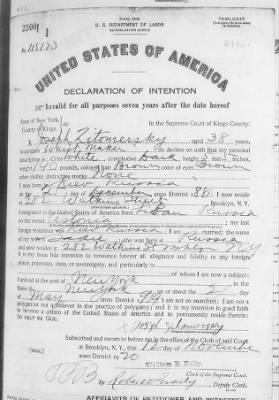 TRIPLICATE
U. S. DEPARTMENT OF LABOR
NATURALIZATION SERVICE
No. 118123
UNITED STATES OF AMERICA
DECLARATION OF INTENTION
Invalid for all purposes seven years after the date hereof
State of New York,
County of Kings,
In the Supreme Court of Kings County.
I, Joseph Zitomersky, aged 38 years,
occupation Waist Maker, do declare on oath that my personal
description is: Color White, complexion Dark, height 5 feet inches,
weight 140 pounds, color of hair Brown, color of eyes Brown
other visible distinctive marks None
I was born in Kiev Russia
on the day of December, anno Domini 1881; I now reside
at 282 Watkins Street Brooklyn, N. Y.
I emigrated to the United States of America from Libau Russia
on the vessel Estonia
foreign residence was Kiev Russia, I am married; the name
of my wife is; she was born at Russia
and now resides at 282 Watkins St Bklyn NY
It is my bona fide intention to renounce forever all allegiance and fidelity to any foreign
prince, potentate, state, or sovereignty, and particularly to
of whom I am now a subject;
I arrived at the port of New York
State of New York, on or about the 2 day
of May, anno Domini; I am not an anarchist; I am not a
polygamist nor a believer in the practice of polygamy; and it is my intention in good faith
to become a citizen of the United States of America and to permanently reside therein:
SO HELP ME GOD.
Subscribed and sworn to before me in the office of the Clerk of said Court
at Brooklyn, N. Y., this 12 day of November
anno Domini 1920
William E. Kelly
Clerk of the Supreme Court.
Deputy Clerk.
AFFIDAVITS OF PETITIONER AND WITNESSES